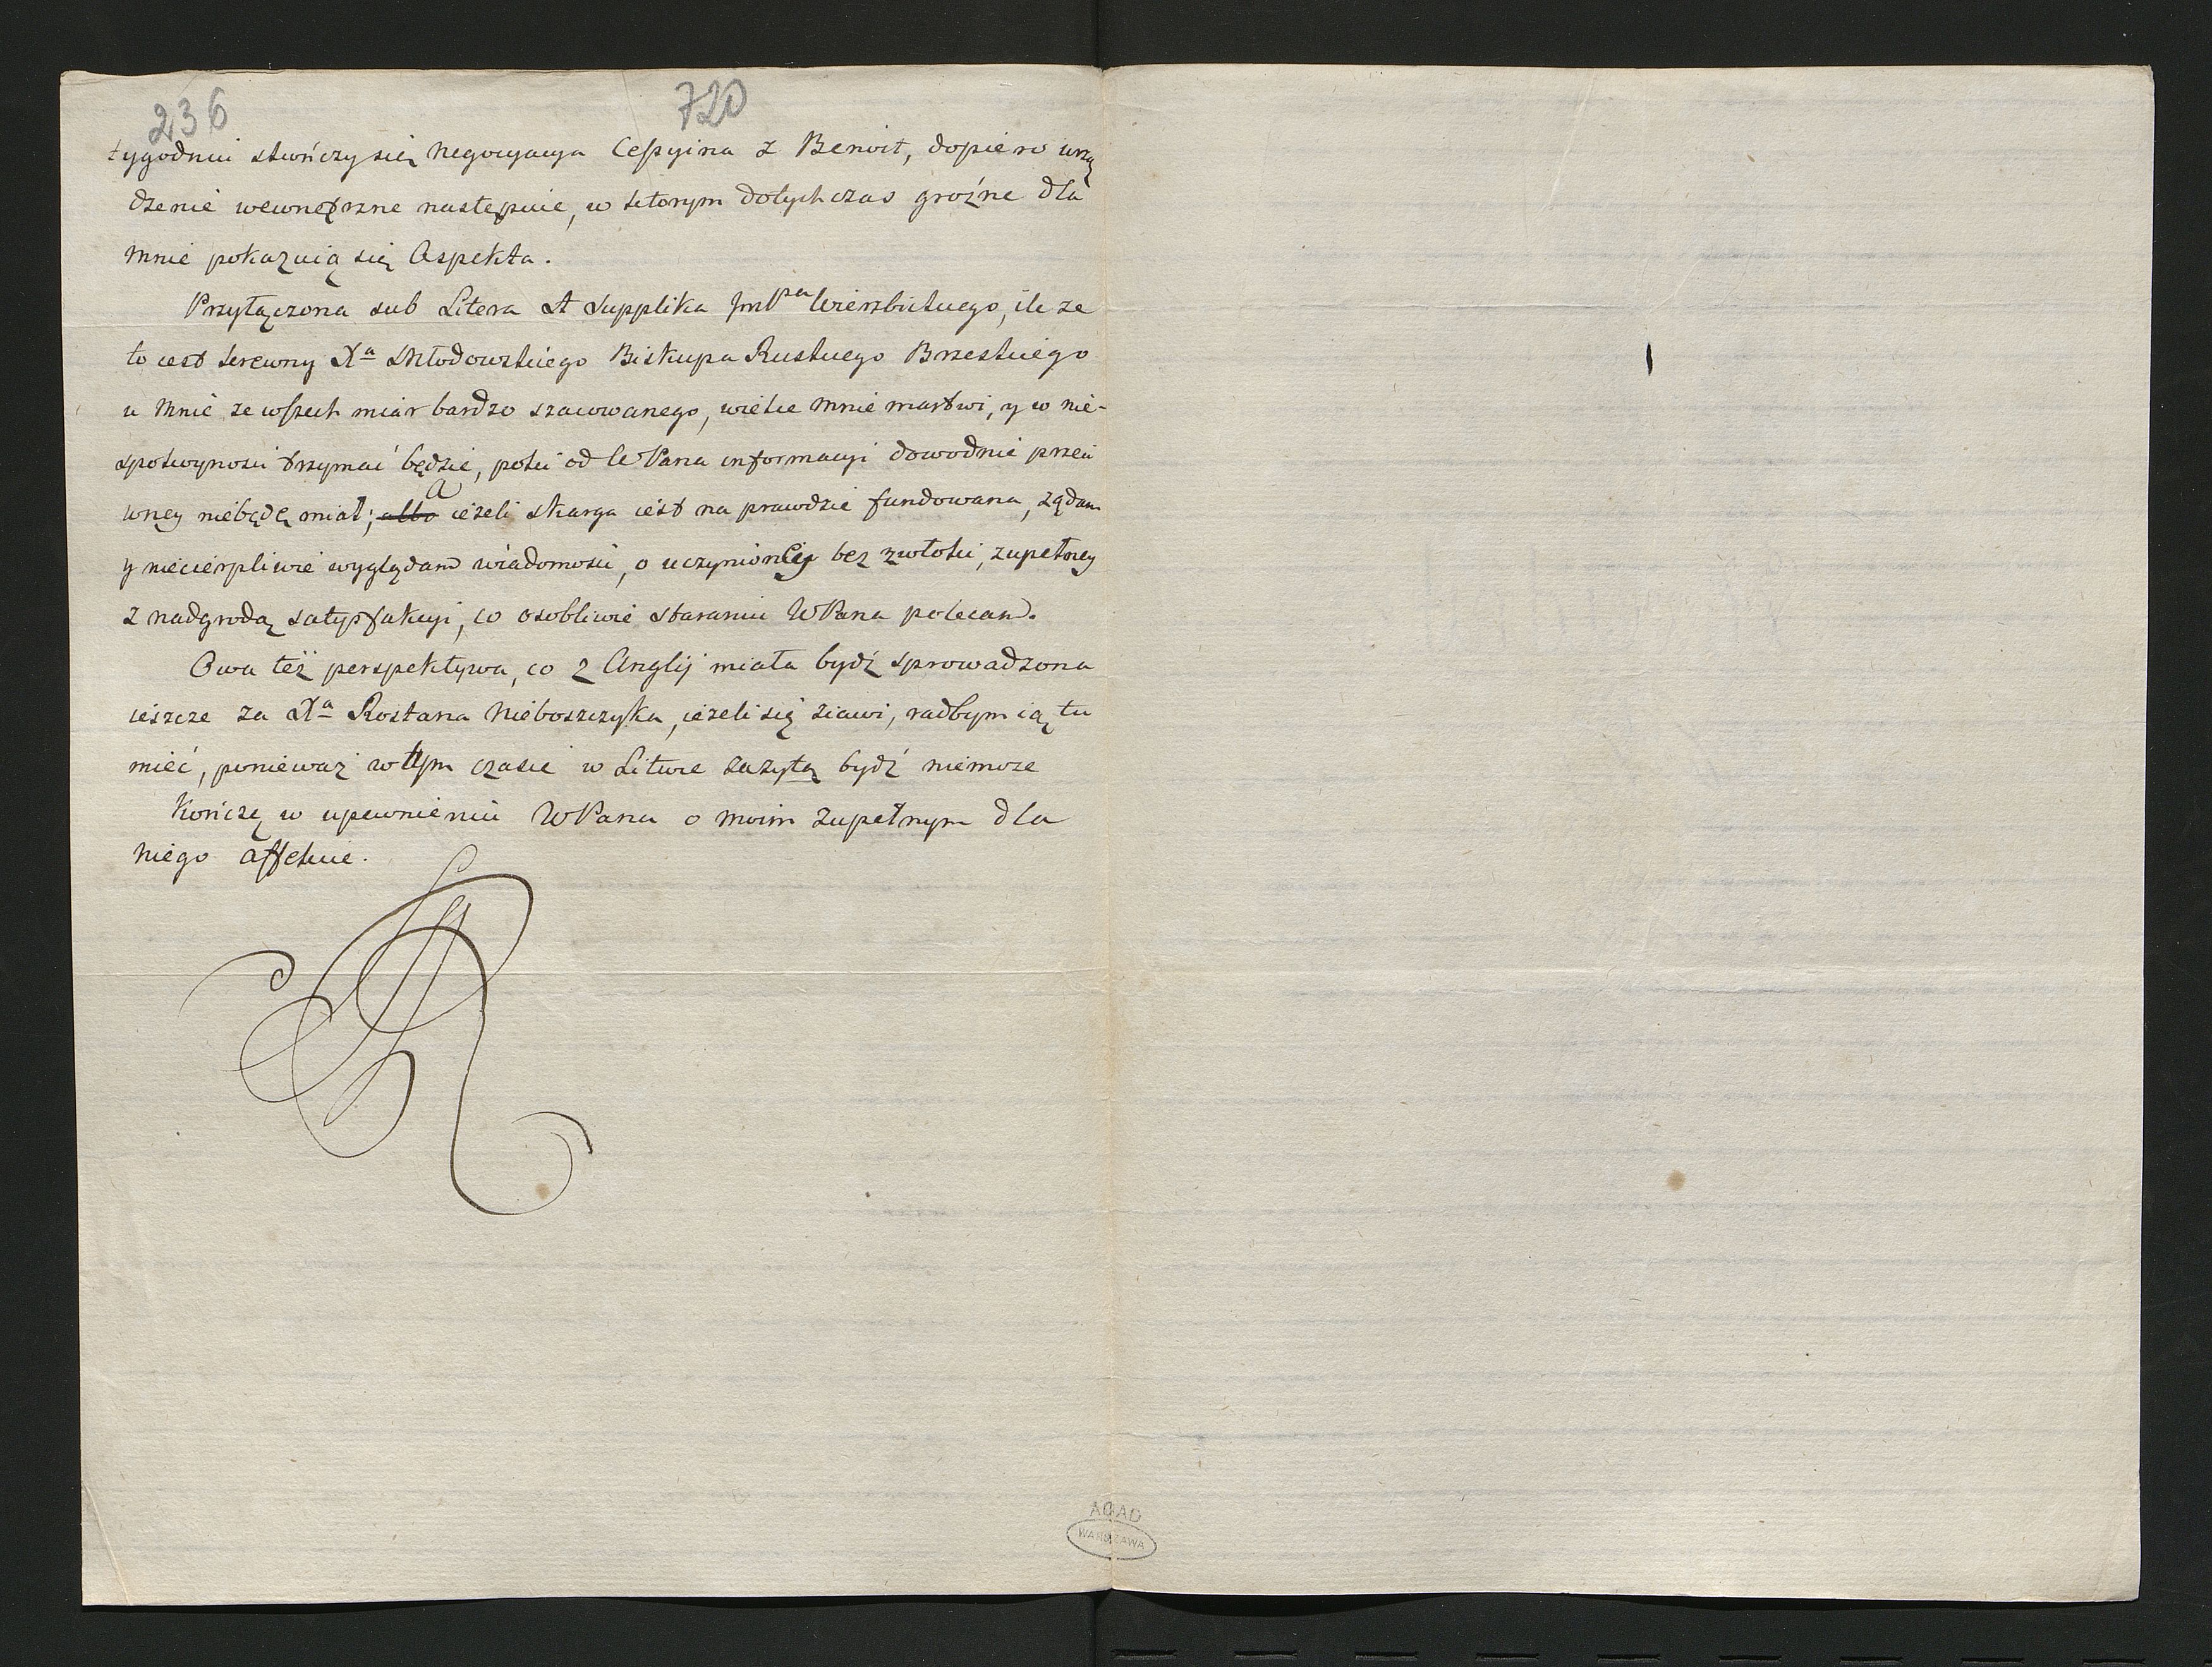 236 720
tygodniu skończy się Negocyacya Cessyina z Benoit, dopiero urzą
dzenie wewnętrzne nastęnpuie, w ktorym dotychczas groźne dla
mnie pokazuią się Aspekta.
Przyłączona sub Litera A Supplika JmPna Wierzbickiego, ile ze
to iest krewny Xa Młodowskiego Biskupa Ruskiego Brzeskiego
u mnie ze wszech miar bardzo szacowanego, wielce mnie martwi, y w nie-
spokoynosci trzymać będzie, poki od WPana informacyi dowodnie przeci
wney niebędę miał; albo a ieżeli skarga iest na prawdzie fundowana, ządam
y niecierpliwie wyglądam wiadomosci, o uczynioney bez zwłoki, zupełney
z nadgrodą satysfakcyi, co osobliwie staraniu WPana polecam.
Owa też perspektywa, co z Anglij miała bydź sprowadzona
ieszcze za Xa Rostana Nieboszczyka, ieżeli się ziawi, radbym ią tu
mieć, ponieważ w tym czasie w Litwie zazytą bydź niemoze
Kończę w upewnieniu WPana o moim zupełnym dla
niego affekcie.
AGAD
WARSZAWA